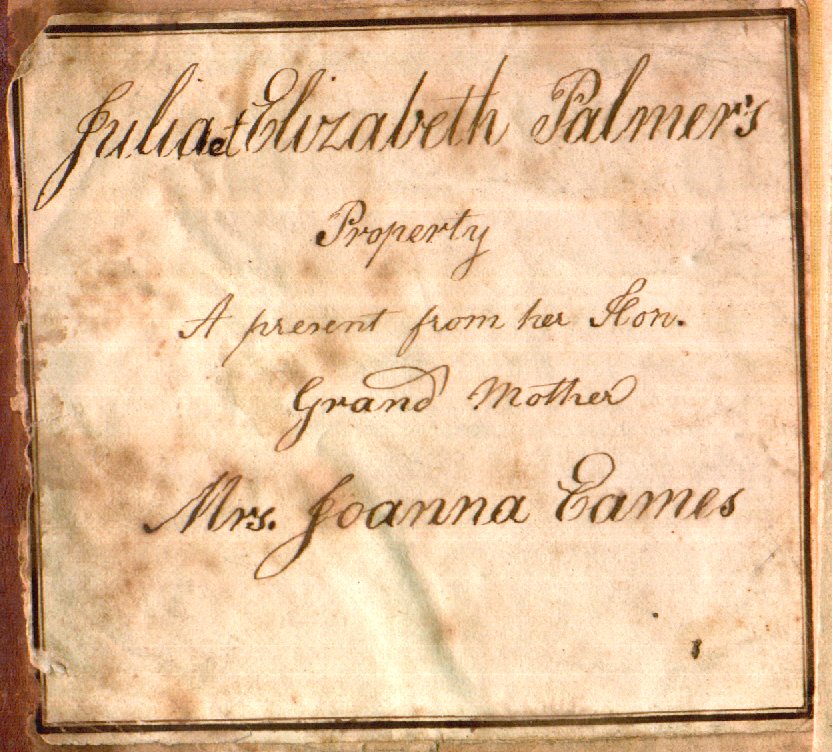 Juliaet Elizabeth Palmer's
Property
A present from her Hon.
Grand Mother
Mrs. Joanna Eames